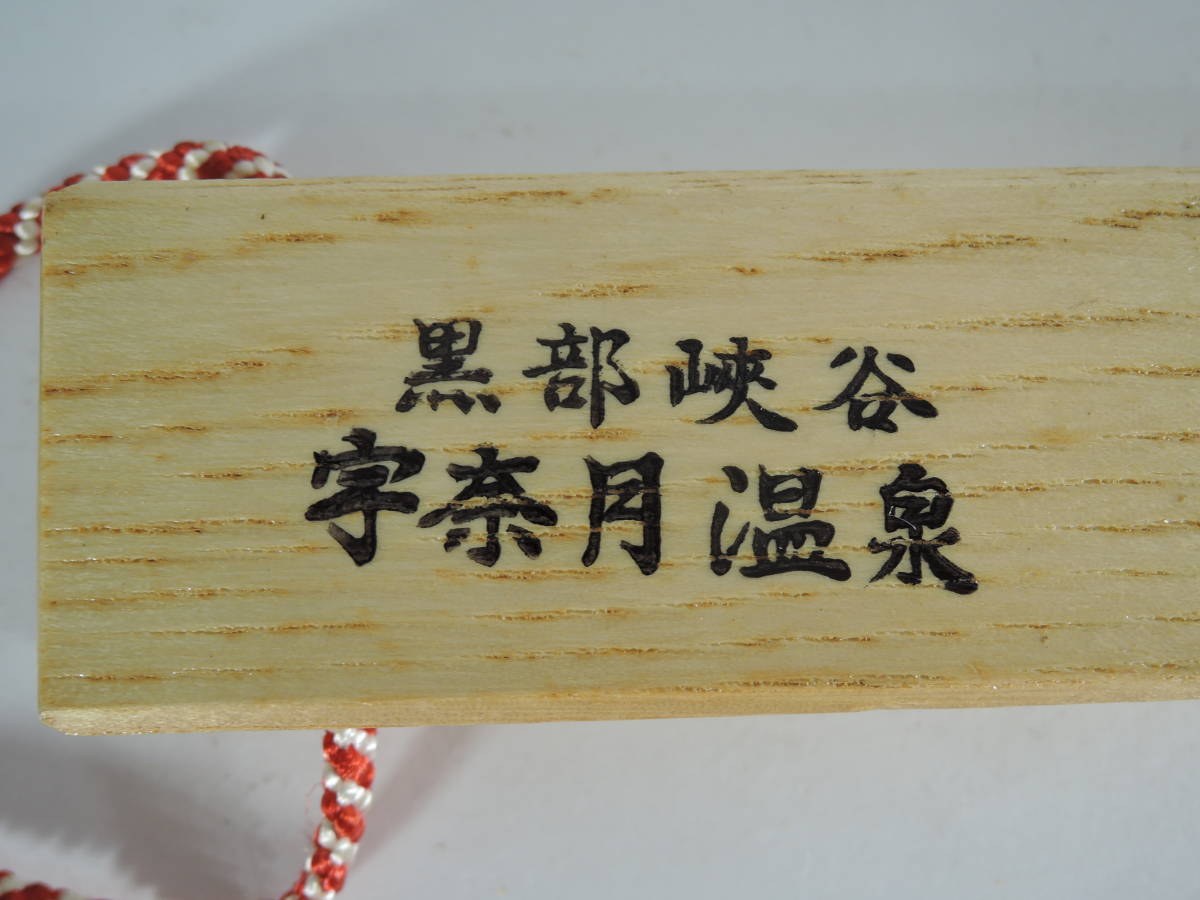 黒部峽谷
宇奈月温泉